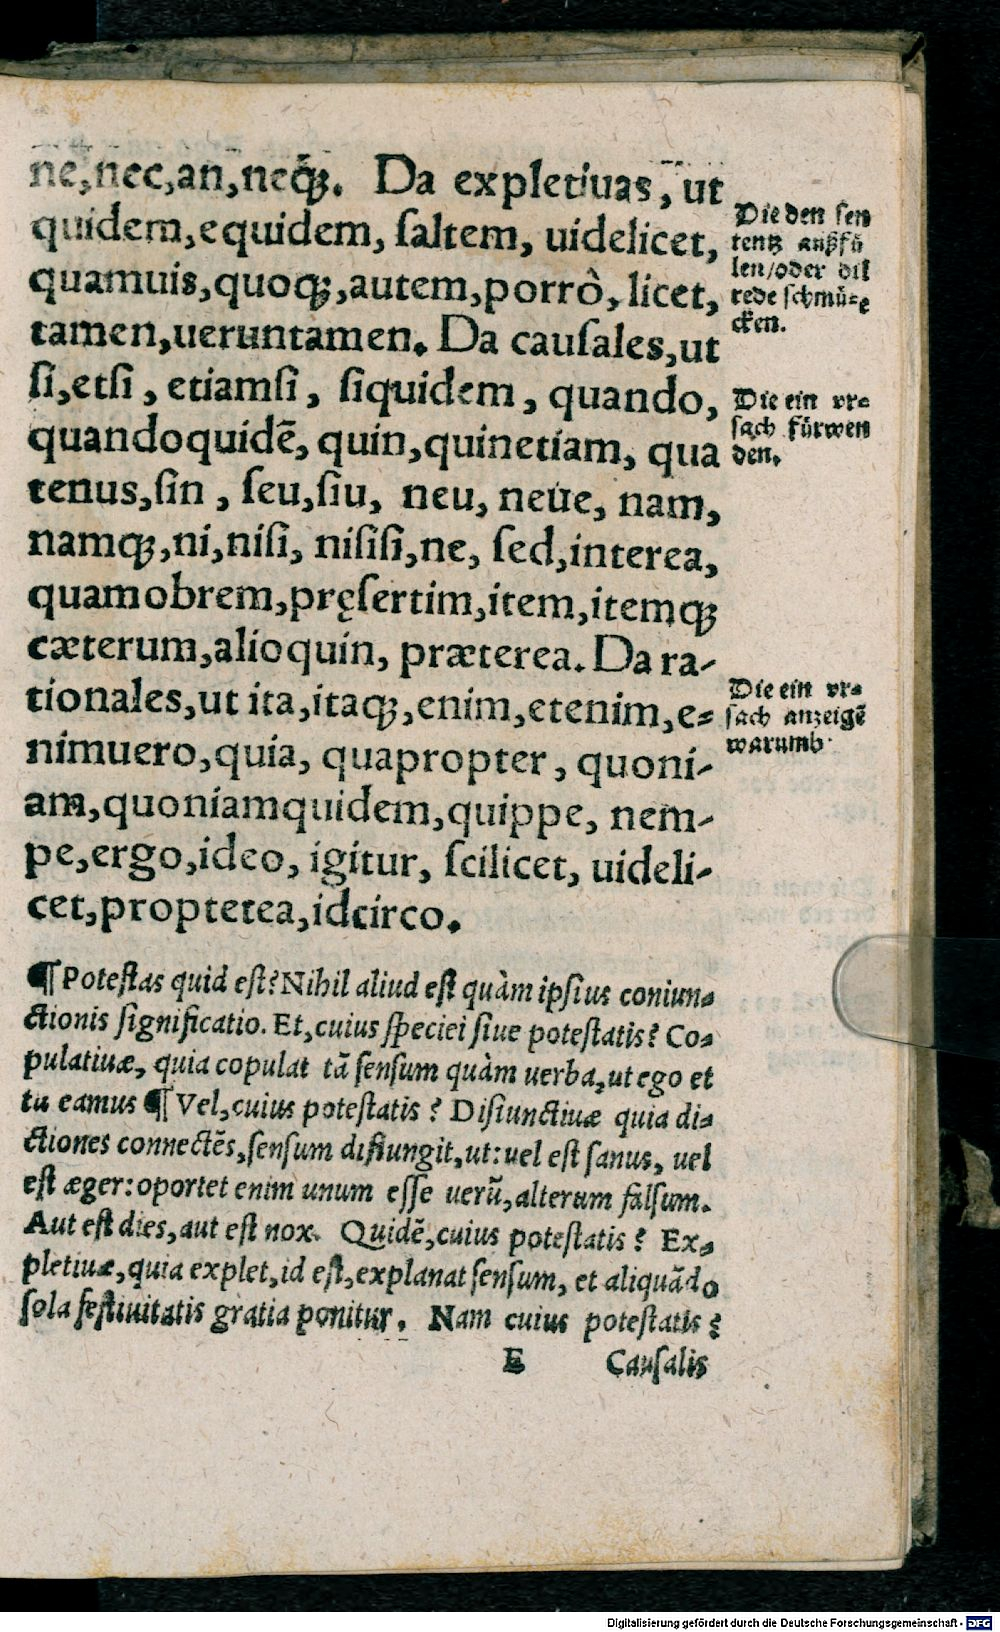 ne,nec,an,neqꝫ. Da expletiuas, ut
quidem,equidem, ſaltem, uidelicet,
quamuis,quoqꝫ,autem,porrò, licet,
tamen,ueruntamen. Da cauſales,ut
ſi,etſi, etiamſi, ſiquidem, quando,
quandoquidē, quin,quinetiam, qua
tenus,ſin, ſeu,ſiu, neu, neue, nam,
namqꝫ,ni,niſi, niſiſi,ne, ſed,interea,
quamobrem,pręſertim,item,itemqꝫ
cæterum,alioquin, præterea. Da ra-
tionales,ut ita,itaqꝫ,enim,etenim,e=
nimuero,quia, quapropter, quoni-
am,quoniamquidem,quippe, nem-
pe,ergo,ideo, igitur, ſcilicet, uideli-
cet,propterea,idcirco.
¶ Poteſtas quid eſt? Nihil aliud eſt quàm ipſius coniun=
ctionis ſignificatio. Et,cuius ſpeciei ſiue poteſtatis? Co=
pulatiuæ, quia copulat tā ſenſum quàm uerba,ut ego et
tu eamus ¶ Vel,cuius poteſtatis? Diſiunctiuæ quia di=
ctiones connectēs,ſenſum diſiungit,ut: uel eſt ſanus, uel
eſt æger: oportet enim unum eſſe uerū,alterum falſum.
Aut eſt dies,aut eſt nox. Quidē,cuius poteſtatis? Ex=
pletiuæ,quia explet,id eſt,explanat ſenſum, et aliquādo
ſola feſtiuitatis gratia ponitur. Nam cuius poteſtatis?
E Cauſalis
Die den ſen
tentz außfü
len/oder die
rede ſchmü=
cken.
Die ein vr=
ſach fürwen
den.
Die ein vr=
ſach anzeigē
warumb
Digitalisierung gefördert durch die Deutsche Forschungsgemeinschaft - DFG